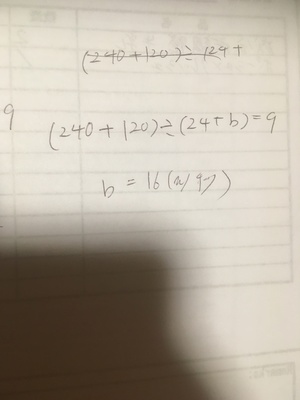 (240+120)÷124+
9
(240+120)÷(24+b)=9
b=16